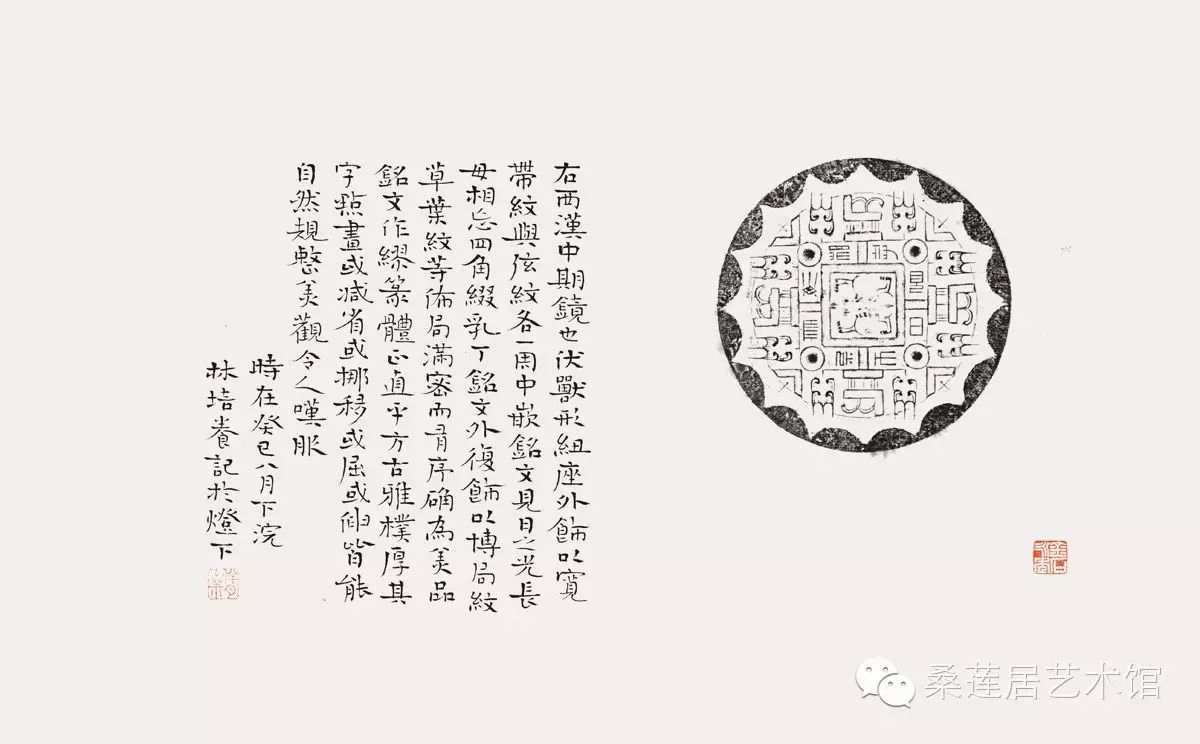 右西漢中期鏡也伏獸形紐座外飾以寬
帶紋與弦紋各一周中嵌銘文見日之光長
毋相忘四角綴乳丁銘文外復飾以博局紋
草葉紋等佈局滿密而有序確為美品
銘文作繆篆體正直平方古雅樸厚其
字點畫或減省或挪移或屈或伸皆能
自然規整美觀令人嘆服
時在癸巳八月下浣
林培養記於燈下
桑莲居艺术馆